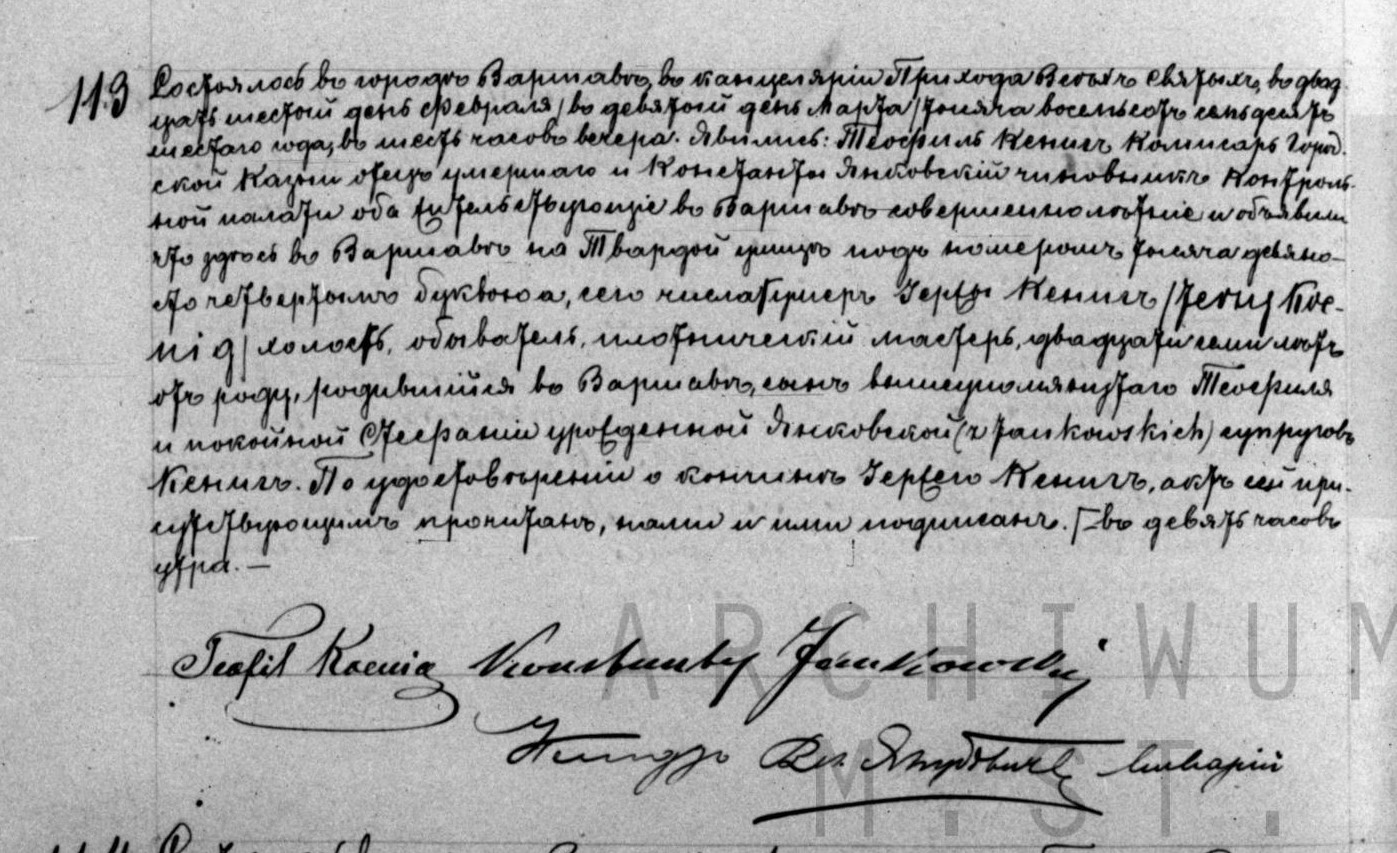 113 Состоялось въ городѣ Варшавѣ, въ канцеляріи Прихода Всѣхъ Святыхъ, въ двад-
цать шестой день Февраля / въ девятый день Марта / тысяча восемьсотъ семьдесятъ
шестаго года, въ шесть часовъ вечера. Явились: Теофиль Кенигъ Комисаръ Город-
ской Казны отецъ умершаго и Константы Янковскій чиновникъ Контроль-
ной палаты оба жительствующіе въ Варшавѣ совершеннолѣтніе и объявили
что здѣсь въ Варшавѣ на Твардой улицѣ подъ номеромъ тысяча девяно-
сто четвертымъ буквою а, сего числа Г умеръ Іержы Кенигъ /Jerzy Koe-
nig/ холостъ, обыватель, плотническій мастеръ, двадцати семи лѣтъ
отъ роду, родившійся въ Варшавѣ, сынъ вышеупомянутаго Теофиля
и покойной Стефаніи урожденной Янковской (z Jankowskich) супруговъ
Кенигъ. По удостовѣреніи о кончинѣ Іержего Кенигъ, актъ сей при-
сутствующимъ прочитанъ, нами и ими подписанъ. Г въ девять часовъ
утра. —
Teofil Koenig Konstanty Jankowski
Викарій
ARCHIWUM
M. ST.